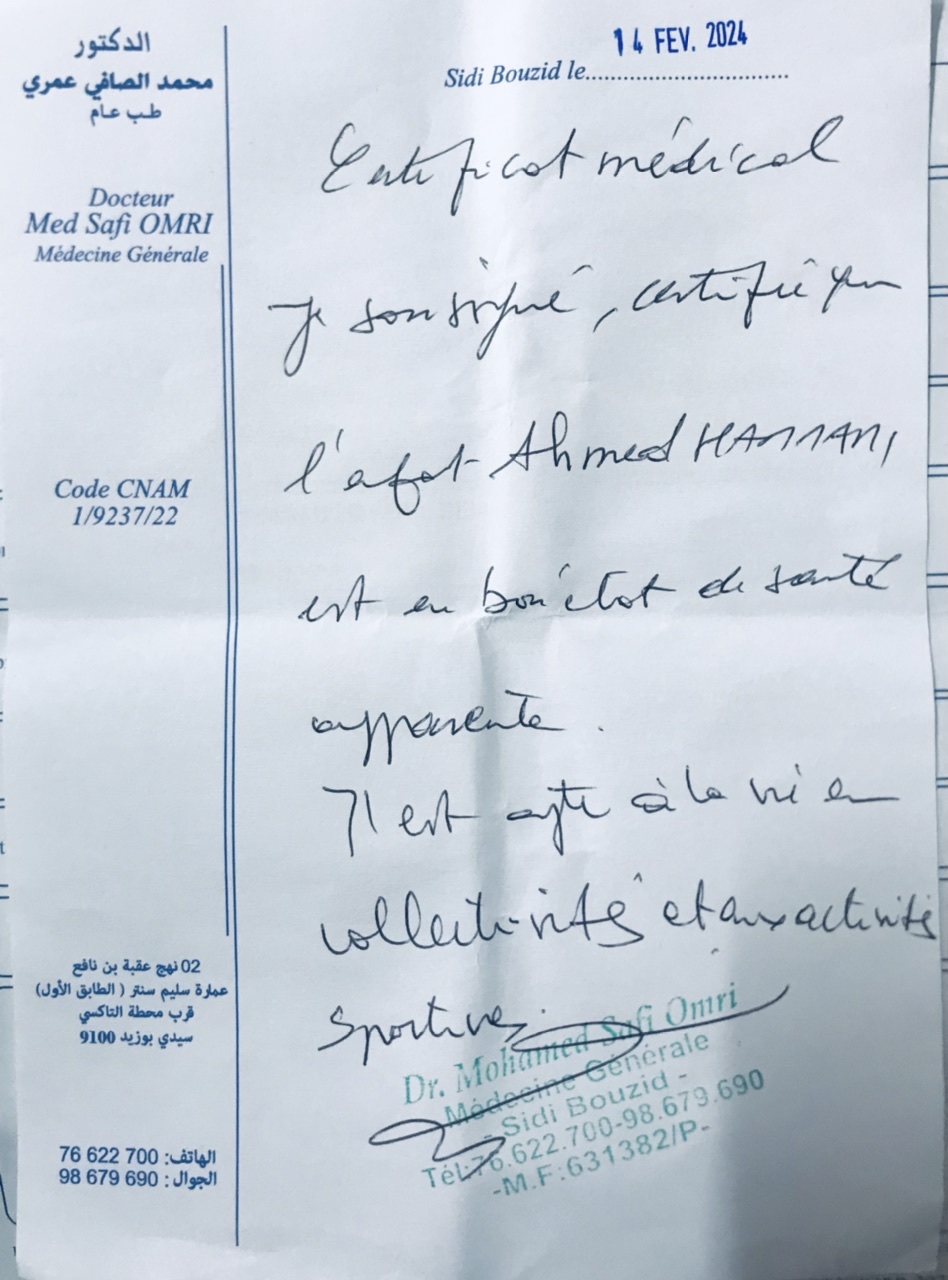 الدكتور
محمد الصافي عمري
طب عام
Docteur
Med Safi OMRI
Médecine Générale
Code CNAM
1/9237/22
02 نهج عقبة بن نافع
عمارة سليم سنتر ( الطابق الأول)
قرب محطة التاكسي
سيدي بوزيد 9100
الهاتف: 76 622 700
الجوال : 98 679 690
14 FEV. 2024
Sidi Bouzid le
Certificat médical
Je soussigné, certifie que
l'enfant Ahmed HAMMAMI
est en bon état de santé
apparente.
Il est apte à la vie en
collectivités et aux activités
Sportives.
Dr. Mohamed Safi Omri
Médecine Générale
- Sidi Bouzid -
Tél:76.622.700-98.679.690
-M.F:631382/P-